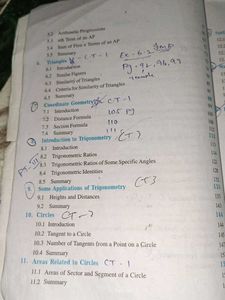 5.2 Arithmetic Progressions
5.3 nth Term of an AP
5.4 Sum of First n Terms of an AP
5.5 Summary
6. Triangles CT-1 Ex-6.3 Imp
6.1 Introduction Pg-92, 96, 97
6.2 Similar Figures
6.3 Similarity of Triangles
6.4 Criteria for Similarity of Triangles
6.5 Summary
7. Coordinate Geometry CT-1
7.1 Introduction 105 Pg
7.2 Distance Formula 110
7.3 Section Formula 111
7.4 Summary
8. Introduction to Trigonometry CT
8.1 Introduction
8.2 Trigonometric Ratios
8.3 Trigonometric Ratios of Some Specific Angles
8.4 Trigonometric Identities
8.5 Summary
9. Some Applications of Trigonometry CT3
9.1 Heights and Distances
9.2 Summary
10. Circles CT-
10.1 Introduction
10.2 Tangent to a Circle
10.3 Number of Tangents from a Point on a Circle
10.4 Summary
11. Areas Related to Circles CT-1
11.1 Areas of Sector and Segment of a Circle
11.2 Summary